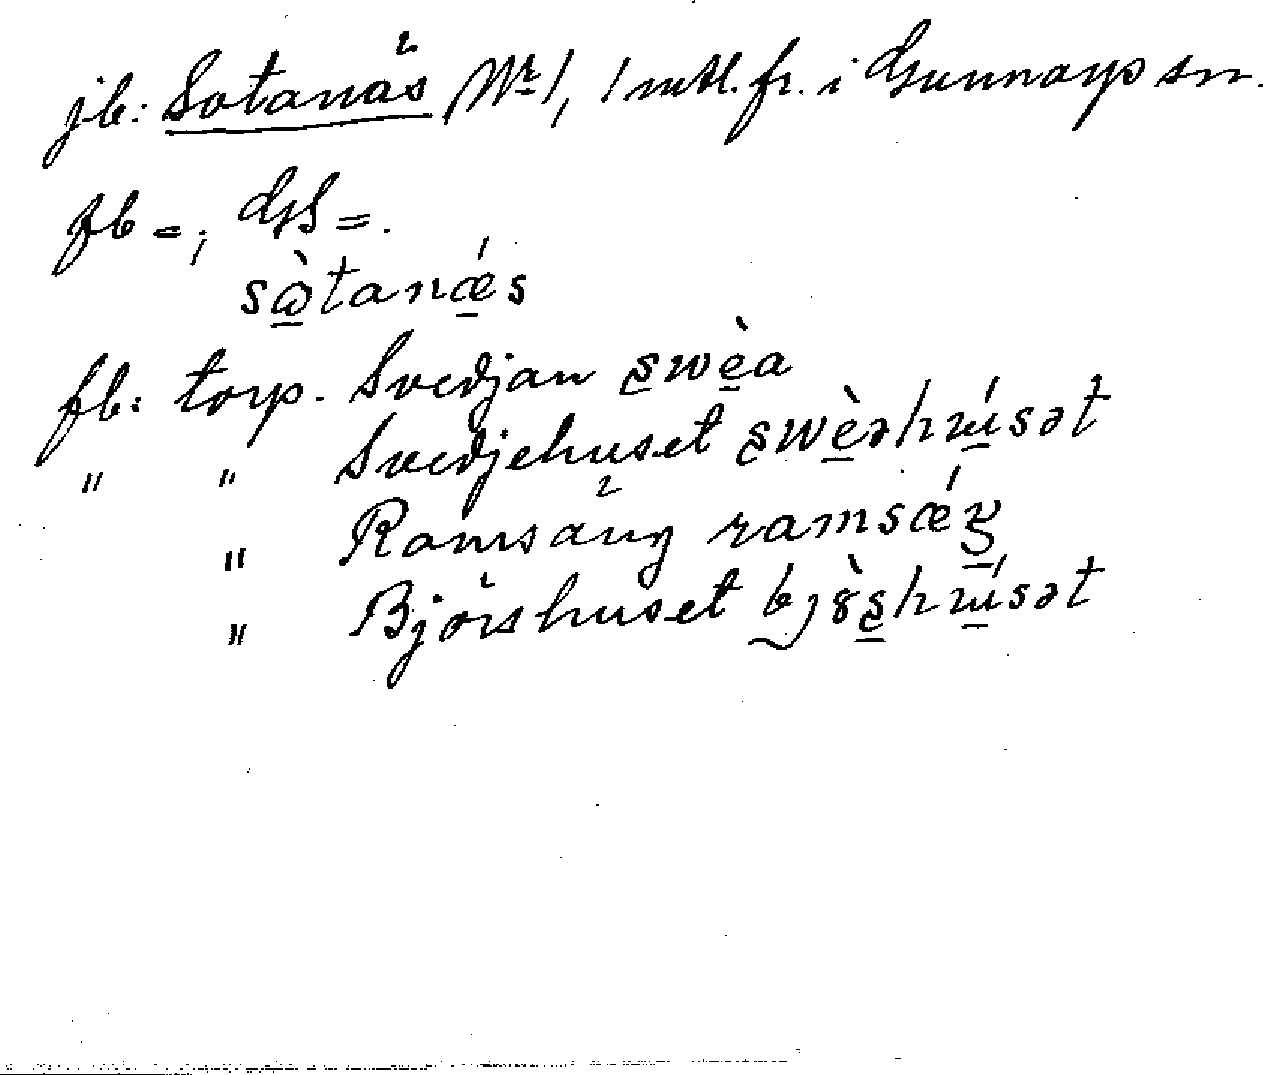 jb: Sotanäs Nr 1, 1 mtl. fr. i Gunnarp sn.
fb =; GS =.
sὼtanǽs
fb: torp. Svedjan swèa
" " Svedjehuset swèəhúsət
" Ramsäng ramsǽŋ
" Björshuset bjòshúsət